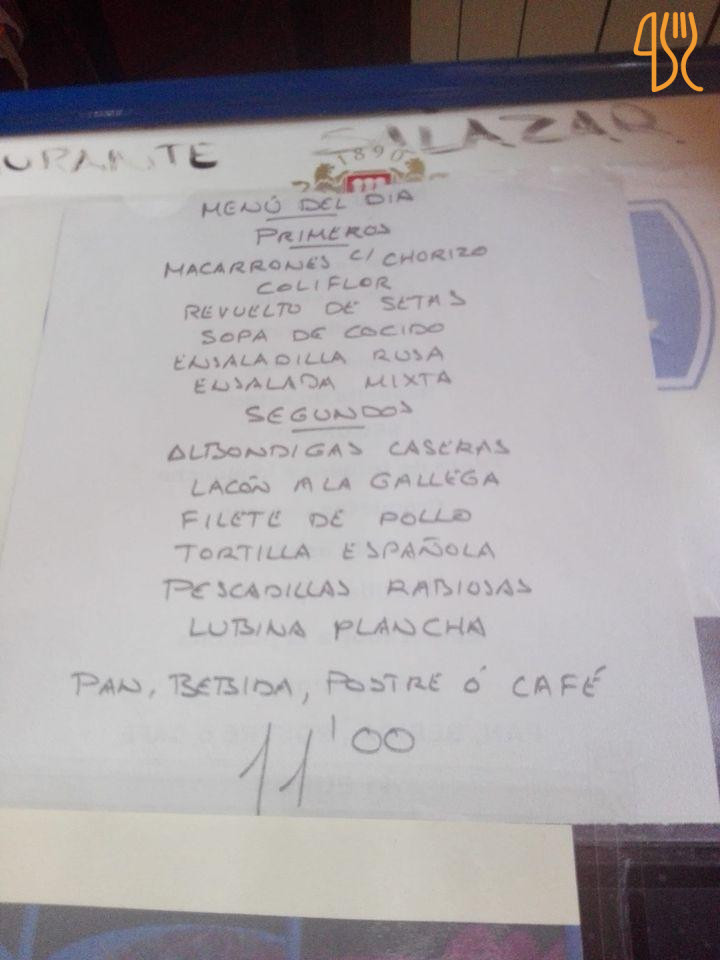 URANTE SALAZAR
1890
MENÚ DEL DIA
PRIMEROS
MACARRONES C/ CHORIZO
COLIFLOR
REVUELTO DE SETAS
SOPA DE COCIDO
ENSALADILLA RUSA
ENSALADA MIXTA
SEGUNDOS
ALBONDIGAS CASERAS
LACÓN A LA GALLEGA
FILETE DE POLLO
TORTILLA ESPAÑOLA
PESCADILLAS RABIOSAS
LUBINA PLANCHA
PAN, BEBIDA, POSTRE Ó CAFÉ
11'00